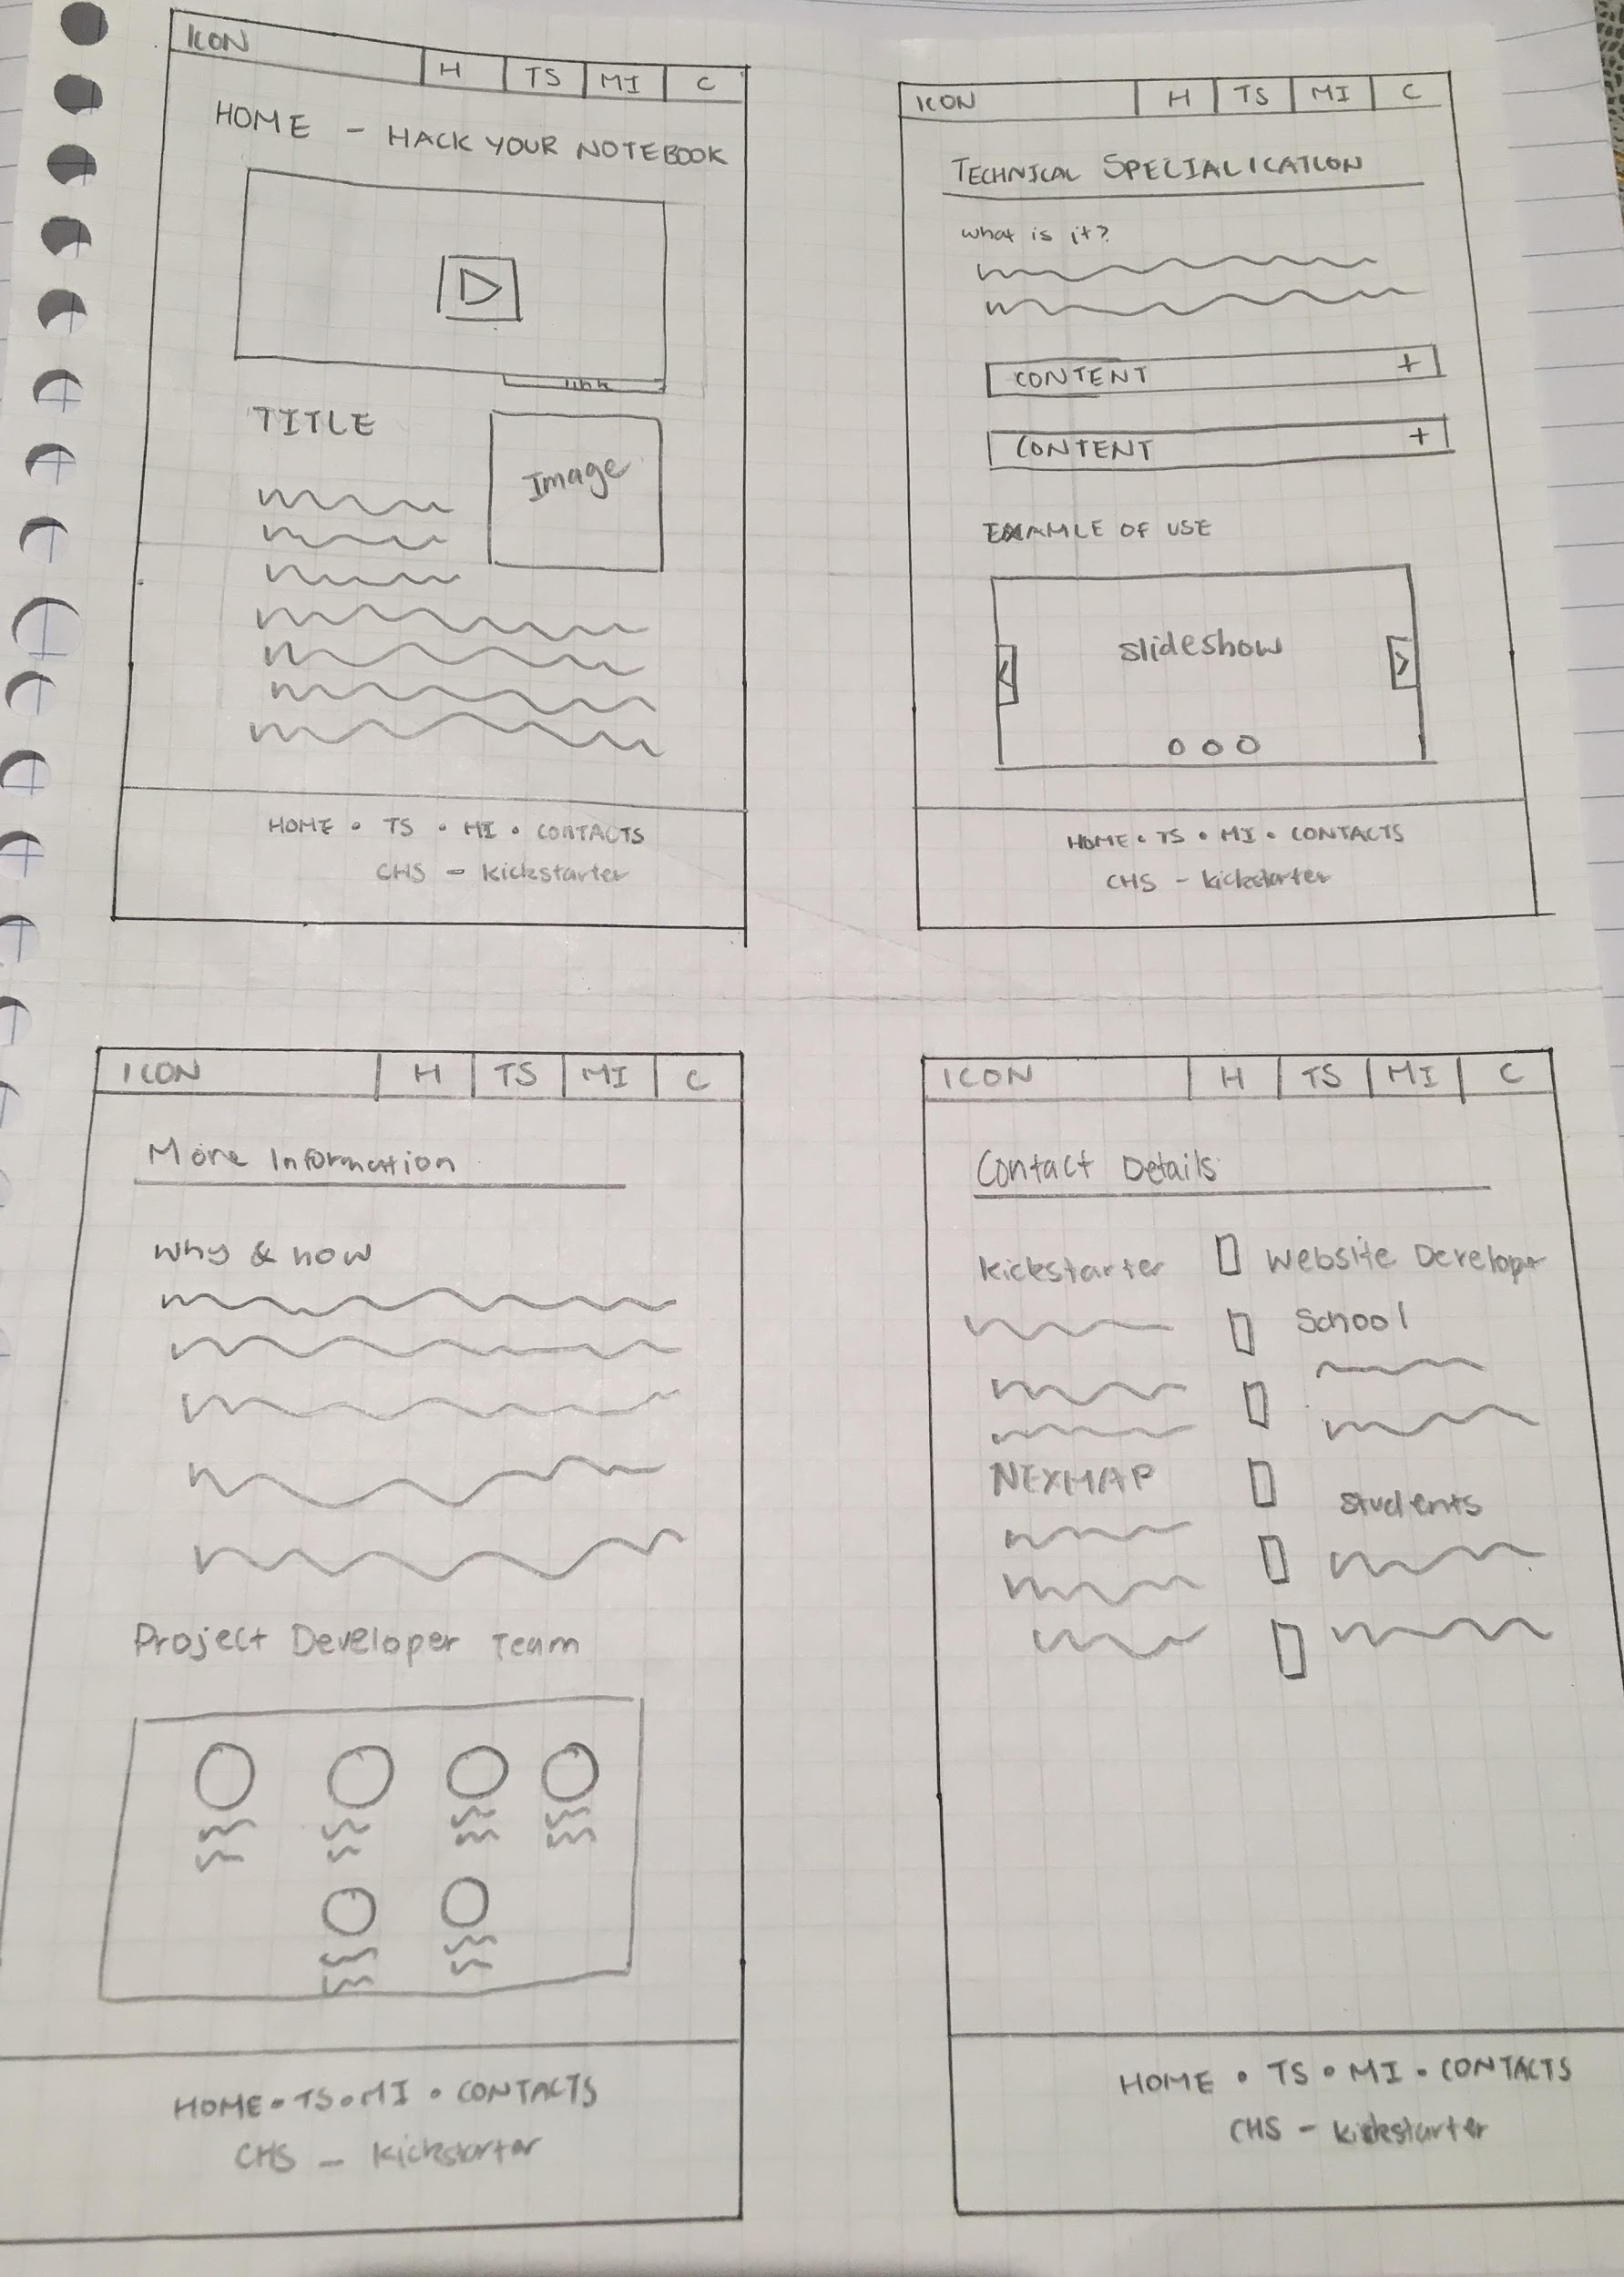 ICON H TS MI C
HOME - HACK YOUR NOTEBOOK
link
TITLE
Image
HOME • TS • MI • CONTACTS
CHS - kickstarter
ICON H TS MI C
TECHNICAL SPECIALICATION
what is it?
CONTENT +
CONTENT +
EXAMLE OF USE
< slideshow >
HOME • TS • MI • CONTACTS
CHS - kickstarter
ICON H TS MI C
More Information
Why & how
Project Developer Team
HOME • TS • MI • CONTACTS
CHS - kickstarter
ICON H TS MI C
Contact Details
kickstarter
NEXMAP
Website Developer
School
Students
HOME • TS • MI • CONTACTS
CHS - kickstarter